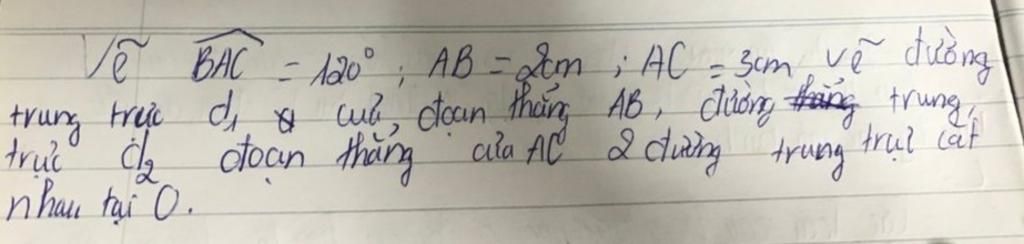 Vẽ BAC = 120° ; AB = 2cm ; AC = 3cm vẽ đường
trung trực d₁ của, đoạn thẳng AB, đường thẳng trung
trực d₂ đoạn thẳng của AC 2 đường trung trực cắt
nhau tại O.